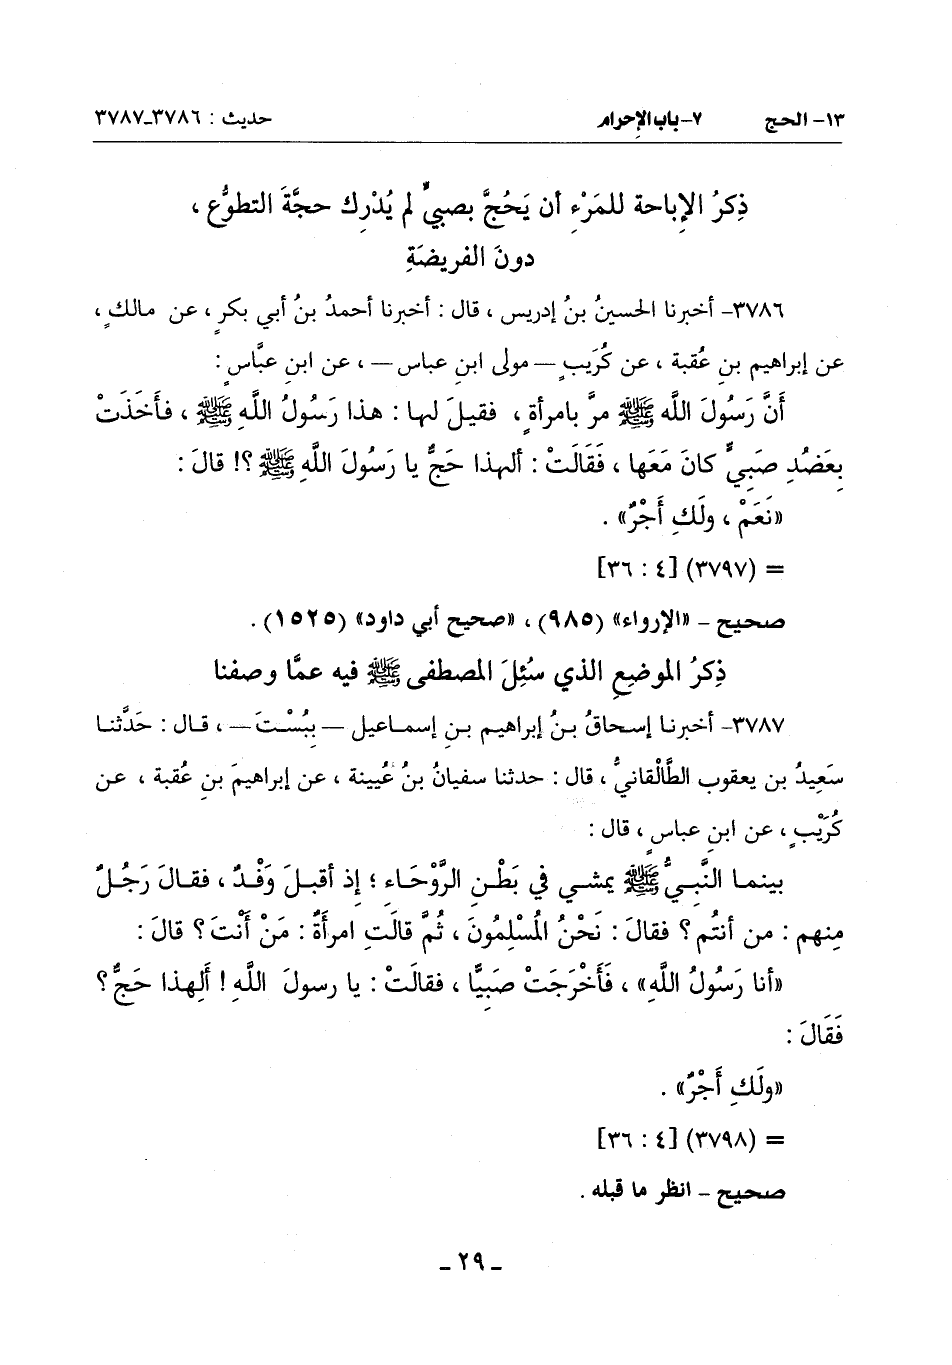 ١٣- الحج ٧-باب الإحرام حديث : ٣٧٨٦-٣٧٨٧
ذِكرُ الإباحة للمَرْءِ أن يَحُجَّ بصبيٍّ لم يُدْرِك حجَّةَ التطوُّعِ ،
دونَ الفريضَةِ
٣٧٨٦- أخبرنا الحسينُ بنُ إدريس ، قال : أخبرنا أحمدُ بنُ أبي بكرٍ ، عن مالكٍ ،
عن إبراهيم بنِ عُقبة ، عن كُرَيبٍ — مولى ابنِ عباس — ، عن ابنِ عبَّاسٍ :
أنَّ رَسُولَ اللَّه ﷺ مرَّ بامرأةٍ ، فقيلَ لها : هذا رَسُولُ اللَّهِ ﷺ ، فأَخَذَتْ
بِعَضُدِ صَبيٍّ كانَ مَعَها ، فَقَالَتْ : ألهذا حَجٌّ يا رَسُولَ اللَّهِ ﷺ ؟! قالَ :
«نَعَمْ ، ولَكِ أَجْرٌ» .
= (٣٧٩٧) [٤ : ٣٦]
صحيح - «الإرواء» (٩٨٥) ، «صحيح أبي داود» (١٥٢٥) .
ذِكرُ الموضعِ الذي سُئِلَ المصطفى ﷺ فيه عمَّا وصفنا
٣٧٨٧- أخبرنا إسحاقُ بنُ إبراهيم بنِ إسماعيل — بِبُسْتَ — ، قال : حَدَّثنا
سَعِيدُ بن يعقوب الطَّالْقانيُّ ، قال : حدثنا سفيانُ بنُ عُيينة ، عن إبراهيمَ بنِ عُقبة ، عن
كُرَيْبٍ ، عن ابنِ عباسٍ ، قال :
بينما النَّبيُّ ﷺ يمشي في بَطْنِ الرَّوْحَاءِ ؛ إذ أقبلَ وَفْدٌ ، فقالَ رَجُلٌ
مِنهم : من أنتُم ؟ فقالَ : نَحْنُ المُسْلِمُونَ ، ثُمَّ قالَتِ امرأَةٌ : مَنْ أَنْتَ ؟ قالَ :
«أنا رَسُولُ اللَّهِ» ، فَأَخْرَجَتْ صَبِيًّا ، فقالَتْ : يا رسولَ اللَّهِ ! أَلِهذا حَجٌّ ؟
فَقَالَ :
«ولَكِ أَجْرٌ» .
= (٣٧٩٨) [٤ : ٣٦]
صحيح - انظر ما قبله .
- ٢٩ -